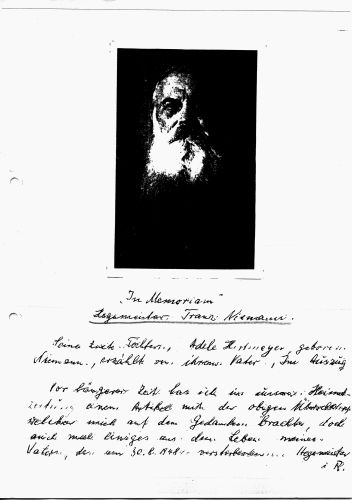 "In Memoriam"
Hegemeister Franz Niemann.
Seine Tochter, Adele Hortmeyer, geboren.
Niemann, erzählt von ihrem Vater, Im Auszug
Vor längerer Zeit las ich in unserer Heimat-
zeitung einen Artikel mit der obigen Überschrift
welcher mich auf den Gedanken brachte, doch
auch mal einiges aus dem Leben meines
Vaters, des am 30. verstorbenen Hegemeister
i. R.